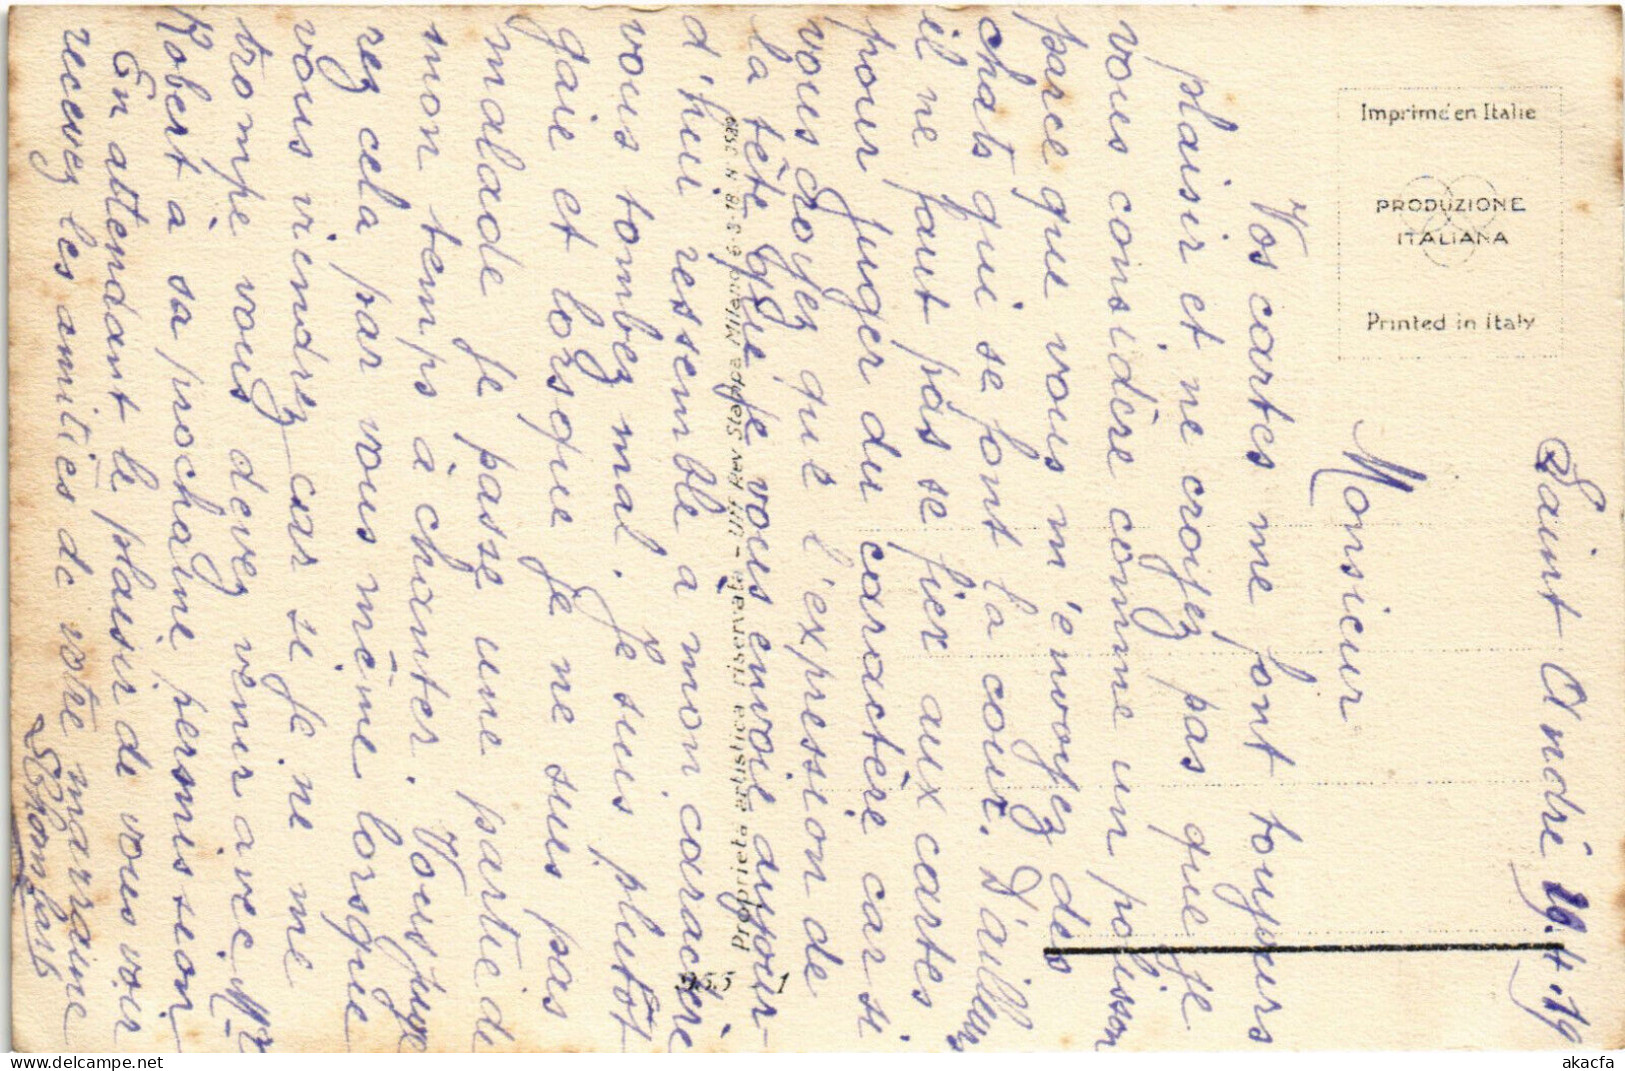 Saint André 29.4.19
Monsieur
Vos cartes me font toujours
plaisir et ne croyez pas que je
vous considère comme un polisson
parce que vous m'envoyez des
chats qui se font la cour. D'ailleurs
il ne faut pas se fier aux cartes
pour juger du caractère car si
vous croyez que l'expression de
la tête que je vous envoie aujour-
d'hui ressemble à mon caractère
vous tombez mal. Je suis plutôt
gaie et lorsque je ne suis pas
malade je passe une partie de
mon temps à chanter. Vous juge
rez cela par vous même lorsque
vous viendrez car si je ne me
trompe vous devez venir avec Mr
Robert à sa prochaine permission
En attendant le plaisir de vous voir
recevez les amitiés de votre marraine
Imprimé en Italie
PRODUZIONE
ITALIANA
Printed in Italy
Proprieta artistica riservata - Uff. Rev. Stampa Milano 6-3-18 N
955 - 1
akacfa